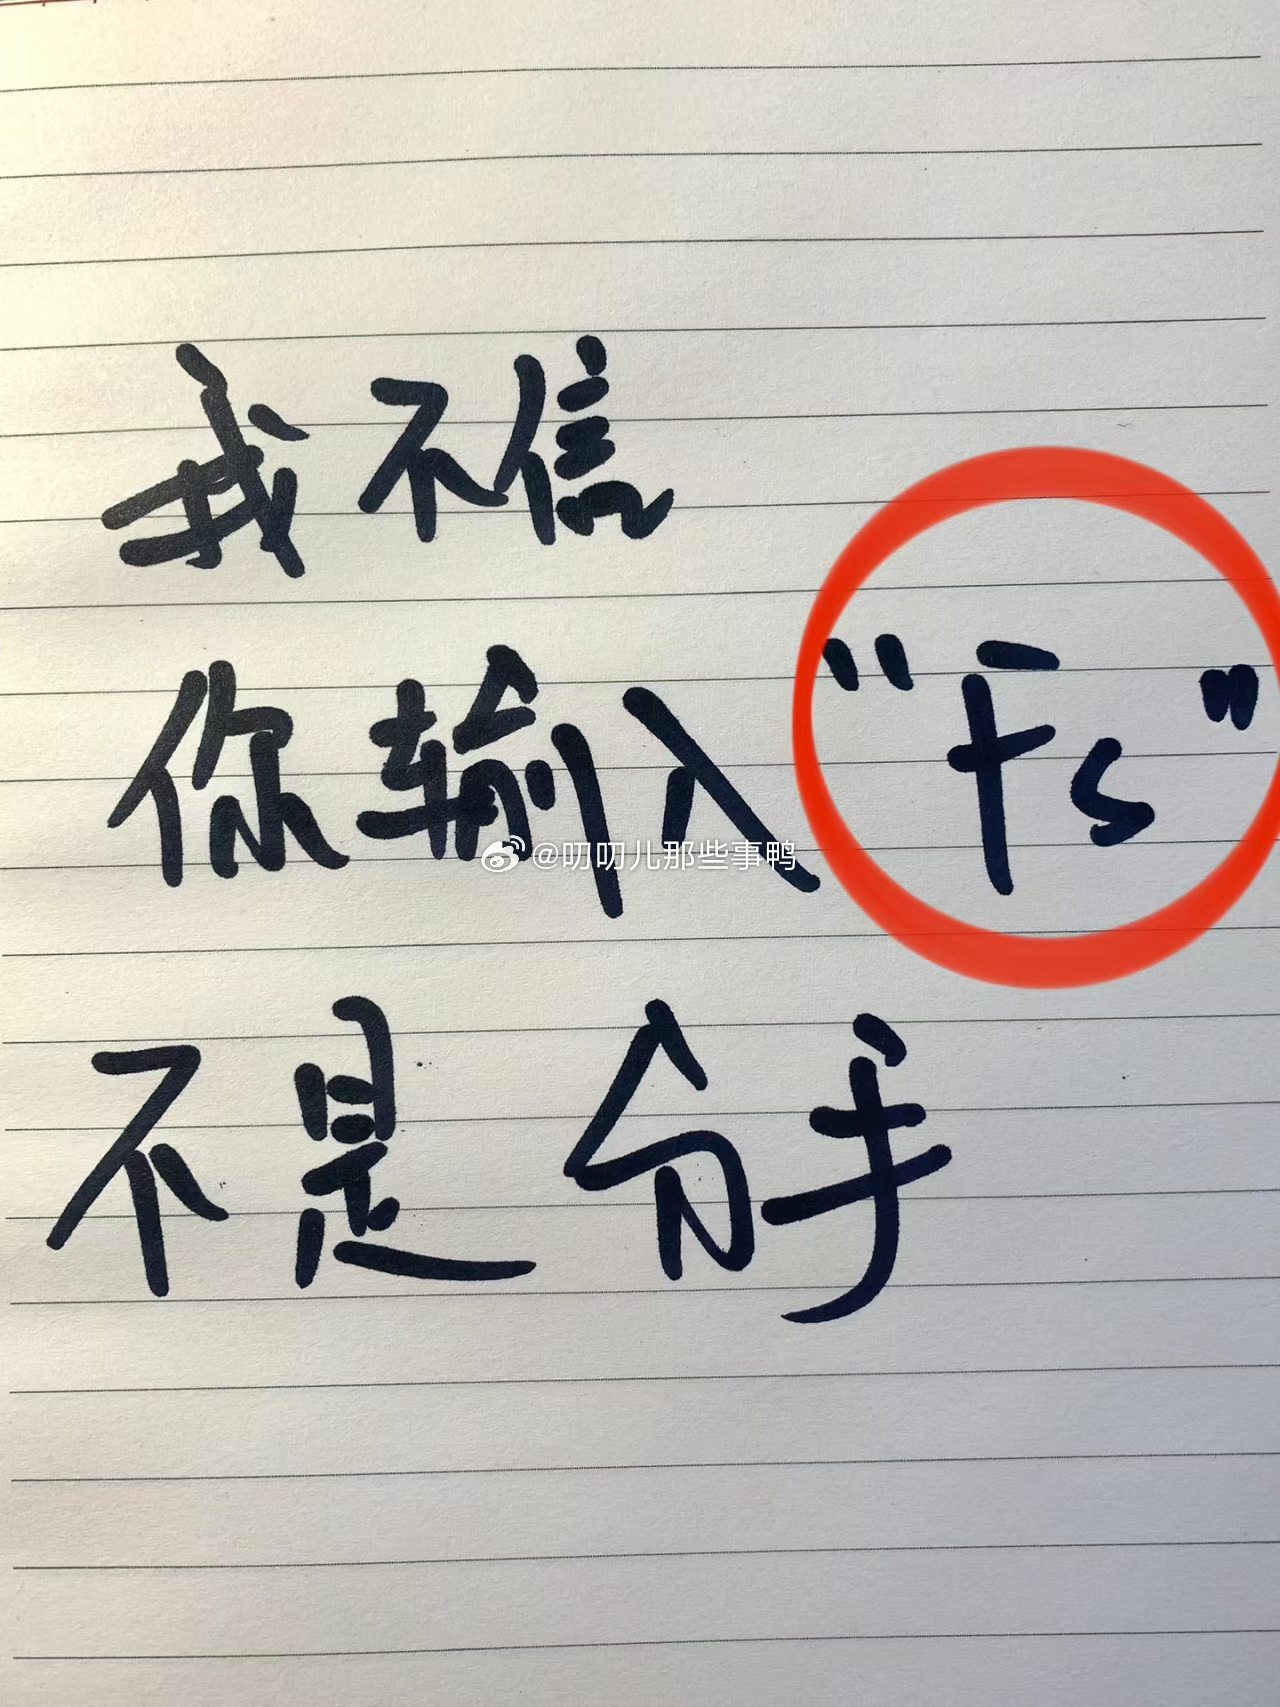 我不信
你输入“Fs”
@叨叨儿那些事鸭
不是分手